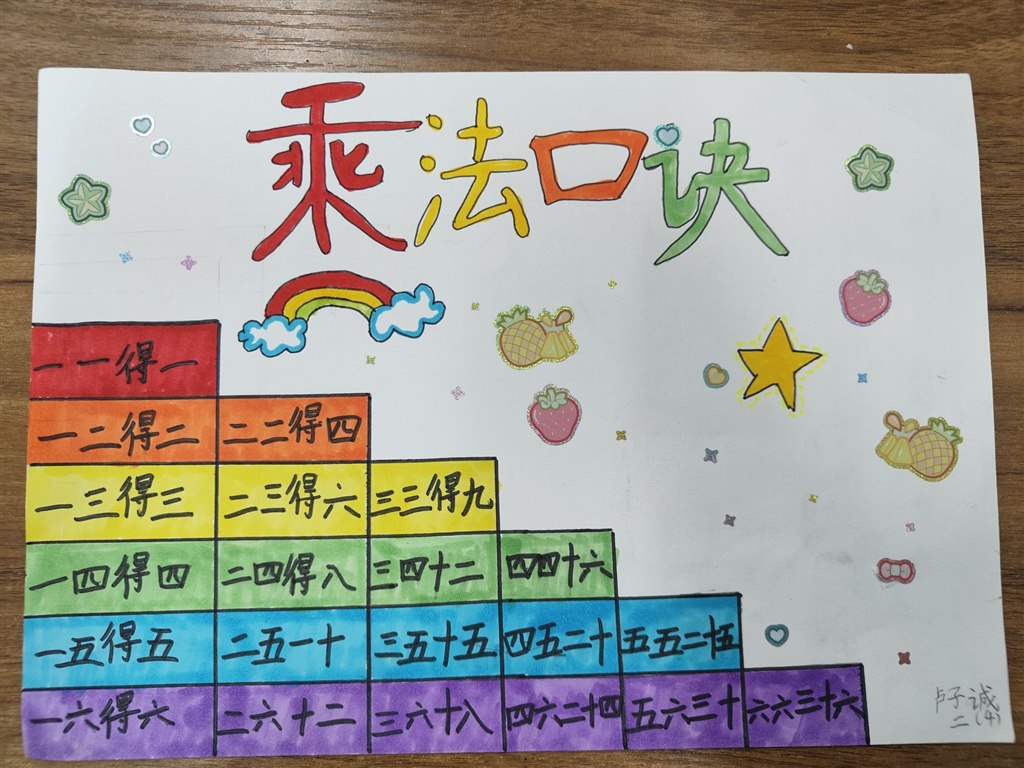 乘法口诀
一一得一
一二得二 二二得四
一三得三 二三得六 三三得九
一四得四 二四得八 三四十二 四四十六
一五得五 二五一十 三五十五 四五二十 五五二十五
一六得六 二六十二 三六十八 四六二十四 五六三十 六六三十六
卢子诚
二(4)